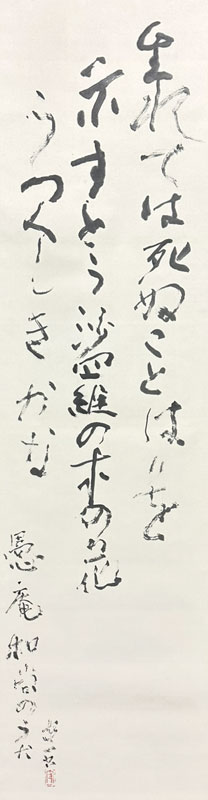 生れては死ぬことはりを
示すとう沙羅の木の花
うつくしきかな
愚庵和尚のうた